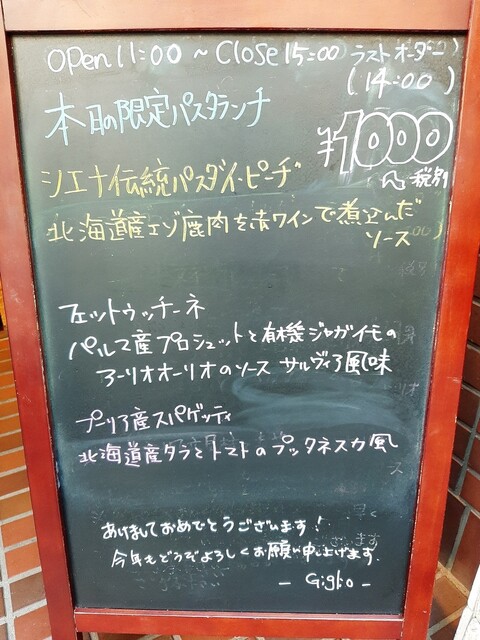 OPEN 11:00 ~ Close 15:00 ラストオーダー
(14:00)
本日の限定パスタランチ
¥1000
税別
シエナ伝統パスタ ピーチ
北海道産エゾ鹿肉を赤ワインで煮込んだ
ソース
フェットウッチーネ
パルマ産プロシュットと有機ジャガイモの
アーリオオーリオのソース サルヴィア風味
プーリア産スパゲッティ
北海道産タラとトマトのプッタネスカ風
あけましておめでとうございます!
今年もどうぞよろしくお願い申し上げます
- Giglio -